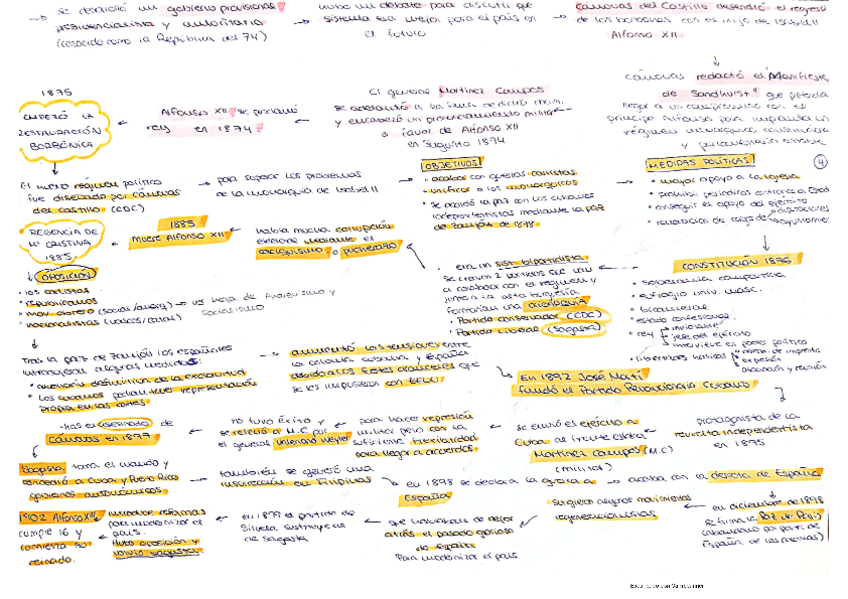 → se decidió un gobierno provisional
presidencialista y autoritario
(conocido como la República del 74)
→ hubo un debate para discutir que
sistema era mejor para el país en
el futuro
→ Cánovas del Castillo defendió el regreso
de los borbones con el hijo de Isabel II
Alfonso XII
↓
Cánovas redactó el "Manifiesto
de Sandhurst" que pretendía
llegar a un compromiso con el
príncipe Alfonso para implantar un
régimen monárquico constitucional
y
←
El general Martínez Campos
se adelantó a
y encabezó un pronunciamiento militar
a favor de Alfonso XII
en Sagunto 1874
←
Alfonso XII se proclamó
rey en 1874
←
1875
EMPEZÓ LA
RESTAURACIÓN
BORBÓNICA
↓
El nuevo régimen político
fue diseñado por Cánovas
del Castillo (CDC)
→ para superar los problemas
de la monarquía de Isabel II
→
OBJETIVOS
• acabar con guerras carlistas
• unificar a los monárquicos
• se acabó la paz con los cubanos
independentistas mediante la paz
de Zanjón de 1878
→
MEDIDAS POLÍTICAS
4
• mayor apoyo a la iglesia
• prohibir periódicos contrarios a Estado
• conseguir el apoyo del ejército
↓
CONSTITUCIÓN 1876
• soberanía compartida
• sufragio univ. masc.
• bicameral
• estado confesional
• rey
inviolable
jefe del ejército
interviene en poder político
• libertades
imprenta
expresión
asociación y reunión
←
• era un sist. bipartidista
se crearon 2 partidos que iban
a colaborar con el régimen y
junto a la alta burguesía
formarían una oligarquía
• Partido conservador (CDC)
• Partido Liberal (Sagasta)
había mucha corrupción
electoral mediante el
caciquismo o pucherazo
←
1885
Muere Alfonso XII
←
REGENCIA DE
Mª CRISTINA
1885
↓
OPOSICIÓN
• los carlistas
• republicanos
• mov. obrero (social/anarq) → us hoja de Anarquismo y
Socialismo
• nacionalistas (vascos/catal)
↓
Tras la paz de Zanjón los españoles
introdujeron algunas medidas:
• abolición definitiva de la esclavitud
• los cubanos podían tener representación
propia en las cortes
→
aumentó las tensiones entre
la colonia cubana y España
debido a los fuertes aranceles que
se les impusieron con EEUU
↳ En 1892 José Martí
fundó el Partido Revolucionario Cubano
protagonista de la
revuelta independentista
en 1895
←
se envió el ejército a
Cuba al frente estaba
Martínez Campos (M.C)
(militar)
←
para hacer represión
militar pero con la
suficiente flexibilidad
para llegar a acuerdos.
←
no tuvo éxito y
se relevó a M.C por
el general Valeriano Weyler
←
tras el asesinato de
Cánovas en 1897
Sagasta toma el mando y
concedió a Cuba y Puerto Rico
gobiernos autonómicos.
→
también se generó una
insurrección en Filipinas
↳ en 1898 se declara la guerra a
España
→ acaba con la derrota de España
en diciembre de 1898
se firma la Paz de París
←
surgieron algunos movimientos
regeneracionistas
que hablaban de dejar
atrás el pasado glorioso
de España
Para modernizar el país
←
en 1899 el partido de
Silvela sustituye al
de Sagasta
←
introducir reformas
para modernizar el
país.
Hubo oposición y
volvió Sagasta.
←
1902 Alfonso XIII
cumple 16 y
comienza su
reinado.